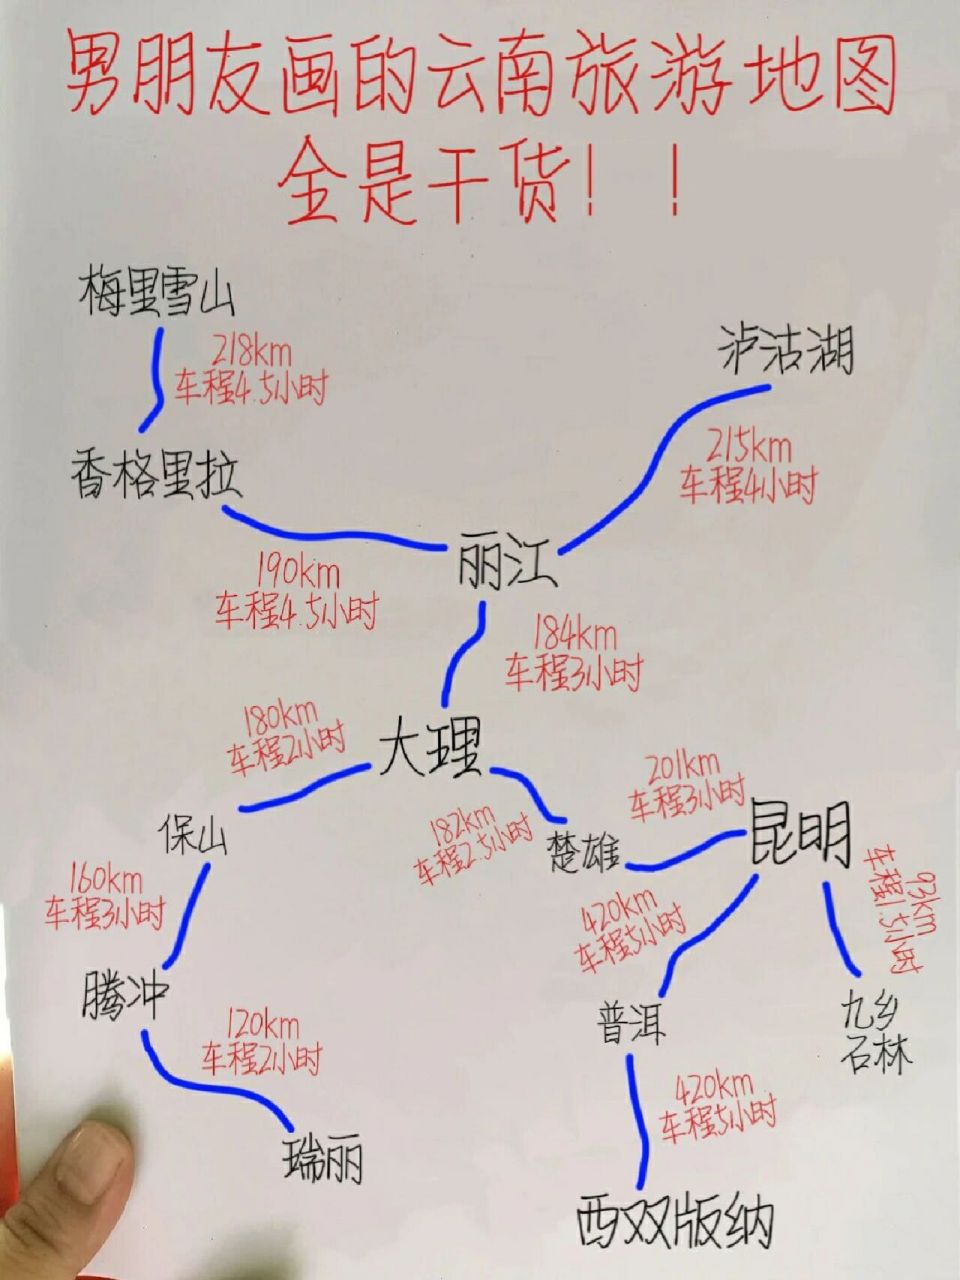 男朋友画的云南旅游地图
全是干货！！
梅里雪山
218km
车程4.5小时
泸沽湖
215km
车程4小时
香格里拉
190km
车程4.5小时
丽江
184km
车程3小时
180km
车程2小时
大理
201km
车程3小时
昆明
保山
182km
车程2.5小时
楚雄
93km
车程1.5小时
160km
车程3小时
420km
车程5小时
腾冲
普洱
九乡
石林
120km
车程2小时
420km
车程5小时
瑞丽
西双版纳